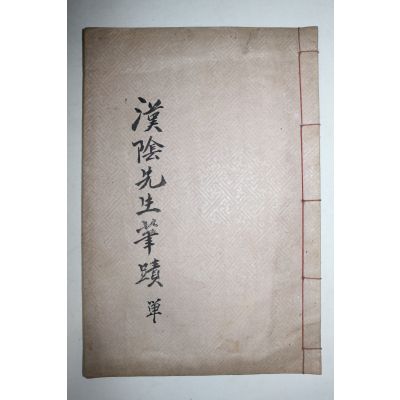 漢陰先生筆蹟 單